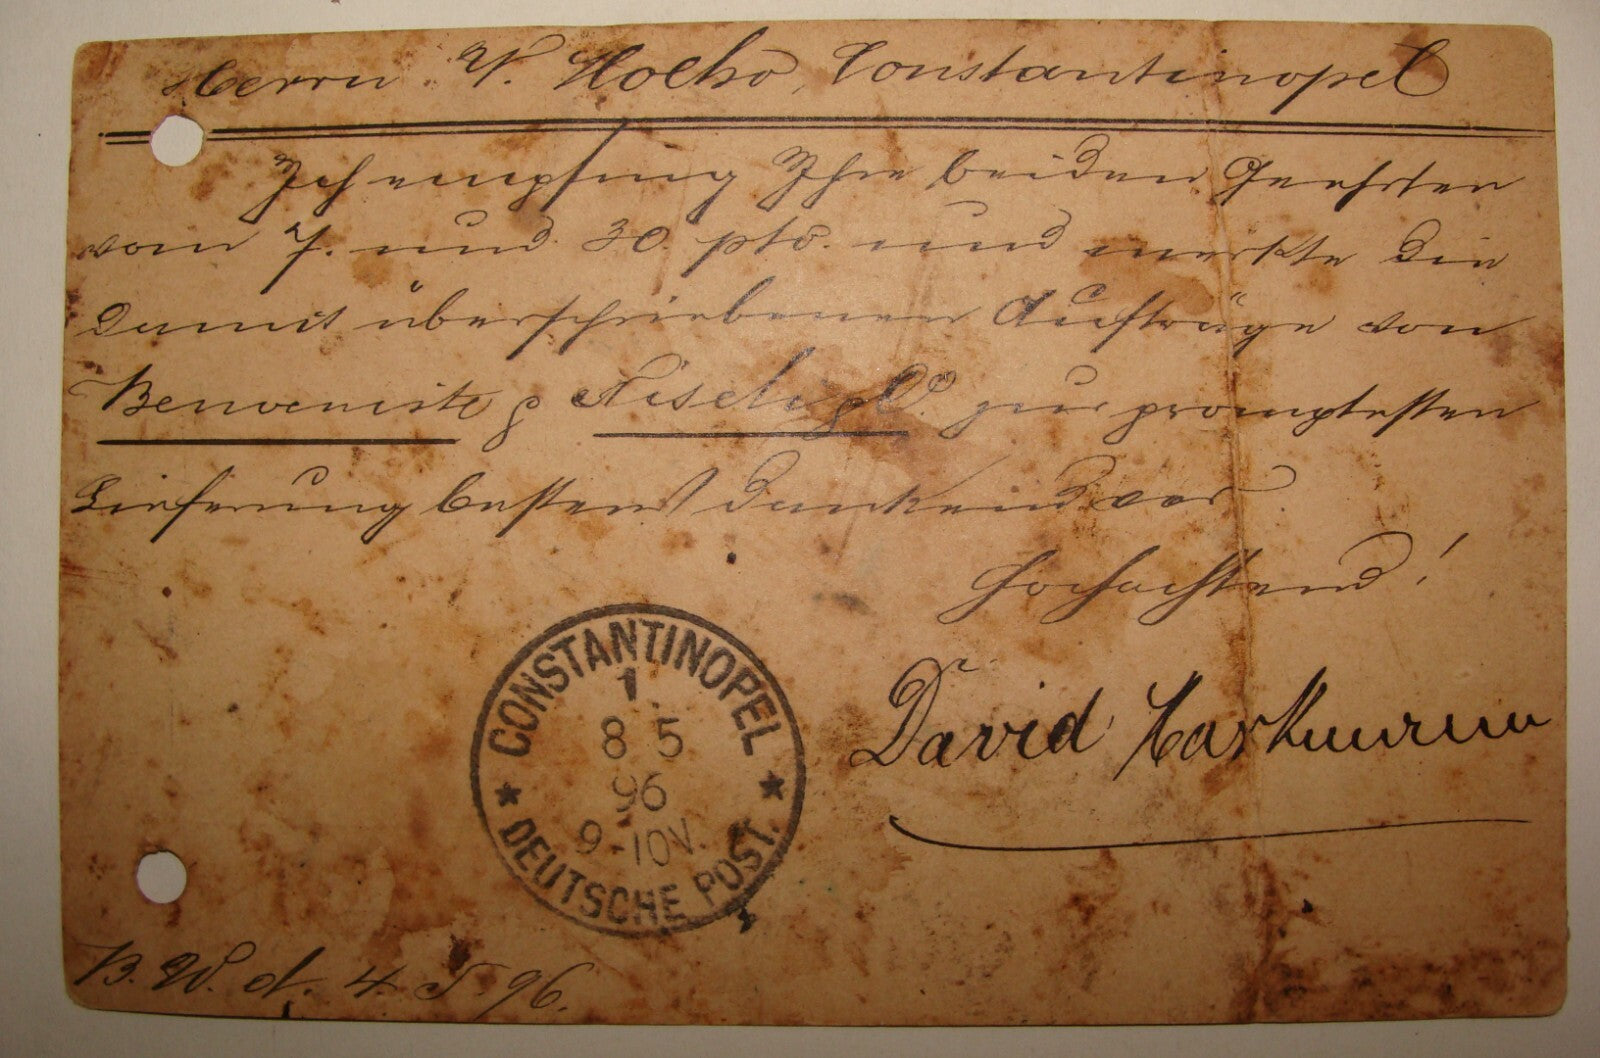 Herrn N. Hocho, Constantinopel
Ich empfing Ihre beiden Geehrten
vom 7. und 30. pto. und merkte die
damit überschriebenen Aufträge von
Benveniste & C°. zur promptesten
Lieferung bestens dankend vor
Hochachtend!
David
CONSTANTINOPEL
1
8 5
96
9-10V.
DEUTSCHE POST.
B. W. d. 4. 5. 96.